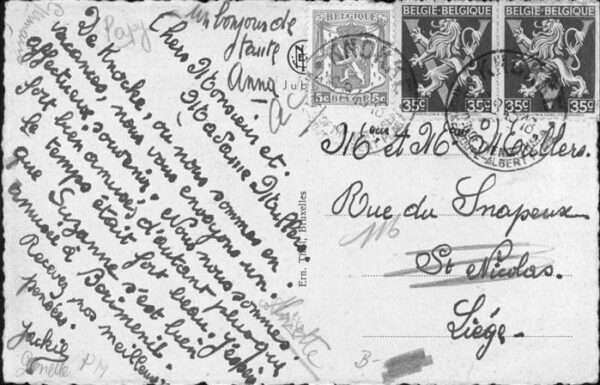 un bonjour de
tante
Anna
Papy
Chers Monsieur et
Madame Mullers.
De Knocke, ou nous sommes en
vacances, nous vous envoyons un
affectueux souvenir. Nous nous sommes
fort bien amusés, d'autant plus que
le temps était fort beau. J'espère
que Suzanne s'est bien
amusée à
Recevez nos meilleures
pensées.
Jackie
BELGIQUE
BELGIE-BELGIQUE
35c
35c
BELGIE-BELGIQUE
35c
35c
KNOCKE
KNOCKE
ALBERT
Ern. Thill, Bruxelles
M. et Mme Mullers.
Rue du Snapeux
116
St Nicolas.
Liége.
B-